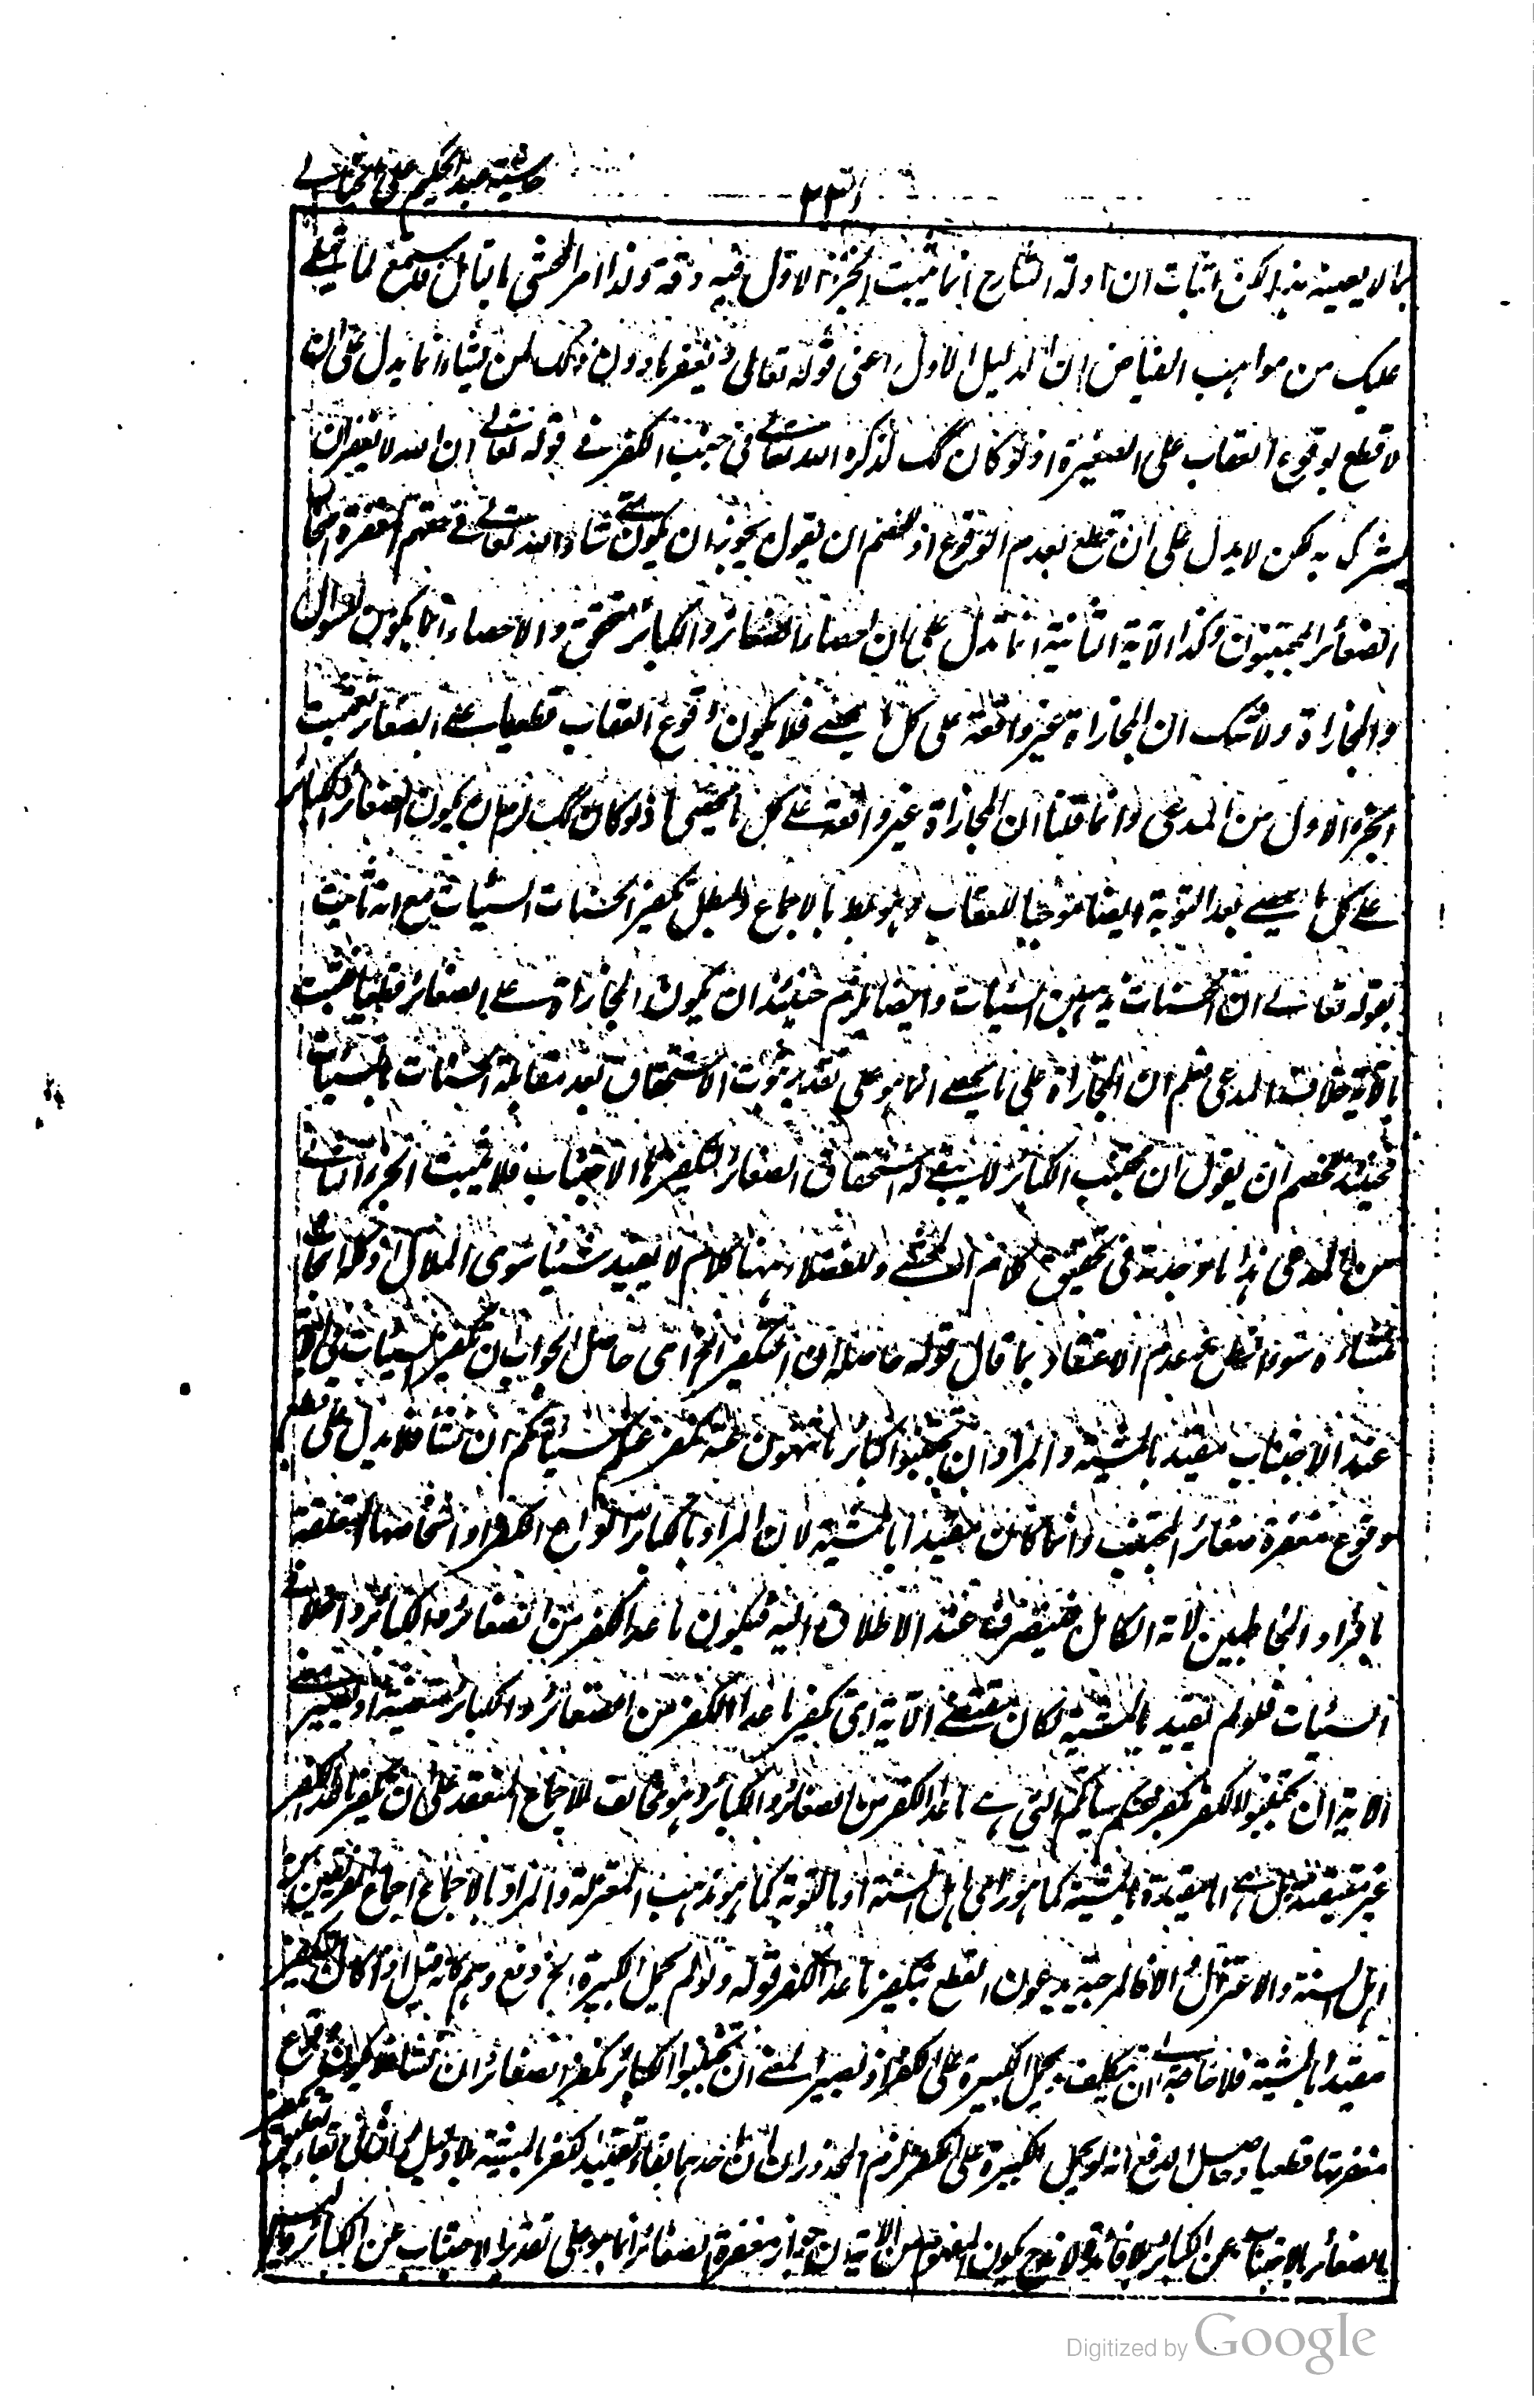 حاشية عبد الحكيم على الخيالي
٢٣١
بما لا يعينه هذا لكن اثبات ان ادلة الشارح انما تثبت الجزء الاول فيه دقة ولذا امر المحشي بالتأمل فاستمع لما يتلى
عليك من مواهب الفياض ان الدليل الاول اعني قوله تعالى ويغفر ما دون ذلك لمن يشاء انما يدل على ان
لا قطع بوقوع العقاب على الصغيرة اذ لو كان كك لذكره الله تعالى في جنب الكفر في قوله تعالى ان الله لا يغفر ان
يشرك به لكن لا يدل على ان قطع بعدم الوقوع اذ للخصم ان يقول يجوز ان يكون شاء الله تعالى في حقهم المغفرة اصحاب
الصغائر المجتنبون وكذا الآية الثانية انما تدل على ان احصاء الصغائر والكبائر متحقق والاحصاء انما يكون للسؤال
والمجازاة ولا شك ان المجازاة غير واقعة على كل ما يحصى فلا يكون وقوع العقاب قطعيا على الصغائر فيثبت
الجزء الاول من المدعى وانما قلنا ان المجازاة غير واقعة على كل ما يحصى اذ لو كان كك لزم ان يكون الصغائر والكبائر
على كل ما يحصى بعد التوبة ايضا موجبا للعقاب وهو غلط بالاجماع ولبطل تكفير الحسنات السيئات مع انه ثابت
بقوله تعالى ان الحسنات يذهبن السيئات وايضا يلزم حينئذ ان يكون المجازاة على الصغائر قطعيا فيثبت
بالآية خلاف المدعى فعلم ان المجازاة على ما يحصى انما هو على تقدير ثبوت الاستحقاق بعد مقابلة الحسنات بالسيئات
فحينئذ للخصم ان يقول ان مجتنب الكبائر لا يبقى له استحقاق الصغائر لتكفيرها الاجتناب فلا يثبت الجزء الثاني
من المدعى هذا ما وجدته في تحقيق كلام المحشي وللفضلاء ههنا كلام لا يفيد شيئا سوى الملال
منشاؤه سوء عدم الاعتقاد بما قال قوله حاصله ان التكفير الخ اي حاصل الجواب ان تكفير السيئات في الآية
عند الاجتناب مقيد بالمشية والمراد ان تجتنبوا كبائر ما تنهون عنه نكفر عنكم سيئاتكم ان نشأ فلا يدل على قطع
وقوع مغفرة صغائر المجتنب وانما كان مقيدا بالمشية لان المراد بالكبائر انواع الكفر او اشخاصها المتعلقة
بافراد المخاطبين لانه الكامل فينصرف عند الاطلاق اليه فيكون ما عدا الكفر من الصغائر والكبائر داخلا في
السيئات فلو لم يقيد بالمشية لكان مقتضى الآية اي تكفير ما عدا الكفر من الصغائر والكبائر متعينة اذ يصير معنى
الآية ان تجتنبوا الكفر نكفر عنكم سيئاتكم التي هي ما عدا الكفر من الصغائر والكبائر وهو مخالف للاجماع المنعقد على ان تكفير ما عدا الكفر
غير متيقن بل هي اما مقيدة بالمشية كما هو رأي اهل السنة او بالتوبة كما هو مذهب المعتزلة والمراد بالاجماع اجماع الفريقين من
اهل السنة والاعتزال والا فالمرجئة يدعون القطع بتكفير ما عدا الكفر قوله ولو لم يحمل الكبيرة الخ دفع وهم كانه قيل اذا كان التكفير
مقيدا بالمشية فلا حاجة الى ان يتكلف بحمل الكبيرة على الكفر اذ يصير المعنى ان تجتنبوا الكبائر نكفر الصغائر ان نشأ فلا يكون وقوع
مغفرتها قطعيا وحاصل الدفع انه لو لم يحمل الكبيرة على الكفر لزم المحذوران احدهما بقاء تقييد نكفر بالمشية بلا دليل والثاني بقاء تعليق تكفير
الصغائر بالاجتناب عن الكبائر بلا فائدة لانه ح يكون المفهوم من الآية ان جواز مغفرة الصغائر انما هو على تقدير الاجتناب عن الكبائر وليس
Digitized by Google